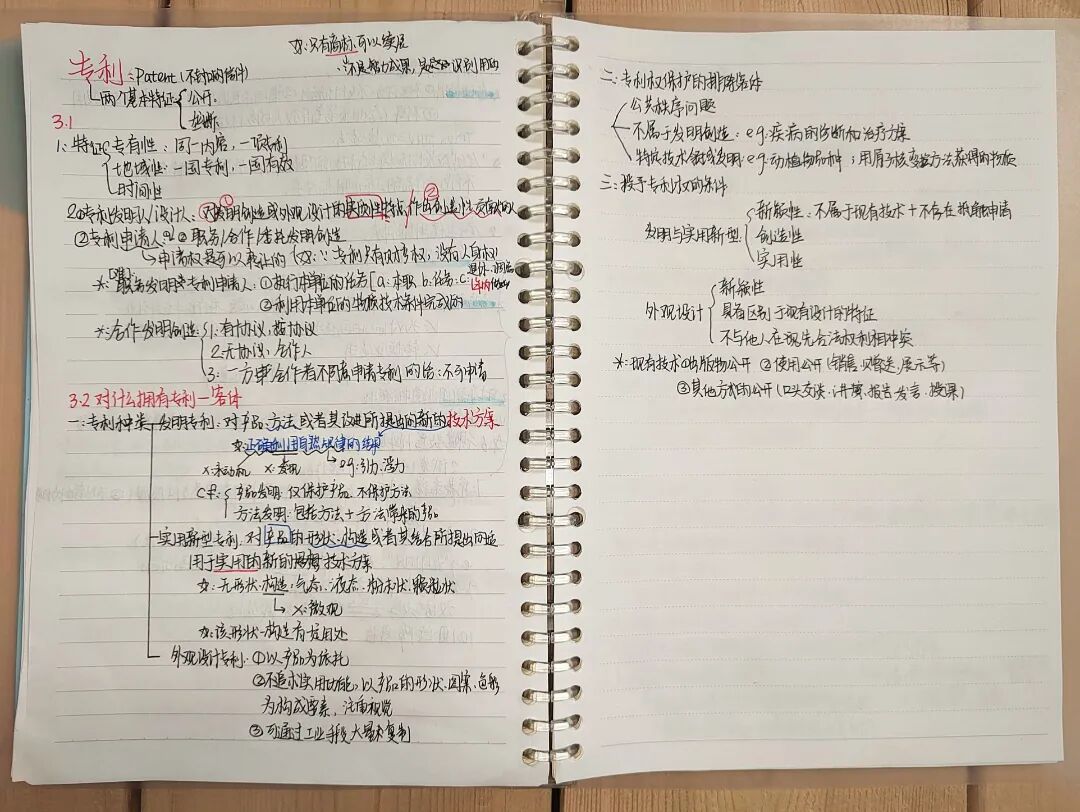 如:只有商标可以续展
专利:Patent
∵不是智力成果,是
两个基本特征 公开
垄断
3.1
1:特征 专有性:同一内容,一项专利
地域性:一国专利,一国有效
时间性
2:①专利发明人/设计人:对发明创造或外观设计的实质性特点作出创造性贡献的人
②专利申请人:职务/合作/委托发明创造
申请权是可以转让的
专利只有财产权,没有人身权
*:职务发明专利申请人:①执行本单位的任务[a:本职 b:任务 c:
1年内
②利用本单位的物质技术条件完成的
*:合作发明创造:1:有协议,按协议
2:无协议,合作人
3:一方或合作者不同意申请专利的话:不可申请
3.2 对什么拥有专利—客体
一:专利种类 发明专利:对产品、方法或者其改进所提出的新的技术方案
如:正确利用自然规律的结果
x:永动机 x: eg:引力、浮力
cf: 产品发明:仅保护产品,不保护方法
方法发明:包括方法+方法带来的产品
实用新型专利:对产品的形状、构造或者其结合所提出的适
用于实用的新的技术方案
如:无形状、构造:气态、液态、粉末状、颗粒状
x:微观
如:该形状、构造有实用处
外观设计专利:①以产品为依托
②不追求实用功能,以产品的形状、图案、色彩
为构成要素,注重视觉
③可通过工业手段大量复制
二:专利权保护的排除客体
公共秩序问题
不属于发明创造:eg:疾病的诊断和治疗方案
特定技术领域发明:eg:动植物品种;用原子核变换方法获得的物质
三:授予专利权的条件
发明与实用新型: 新颖性:不属于现有技术+不存在抵触申请
创造性
实用性
外观设计 新颖性
具有区别于现有设计的特征
不与他人在现先合法权利相冲突
*:现有技术:①出版物公开 ②使用公开(销售、赠送、展示等)
③其他方式的公开(口头交谈、讲演、报告、发言、授课)